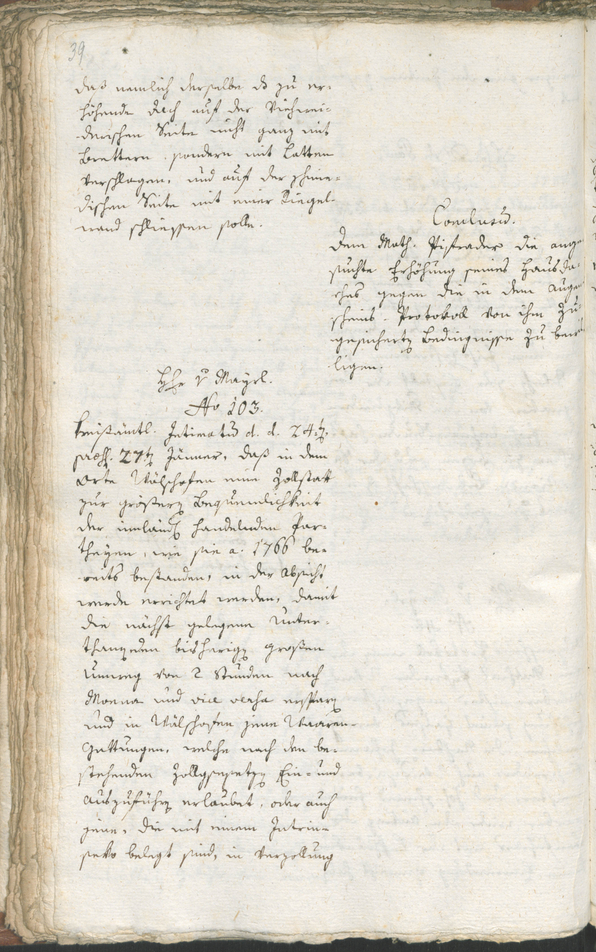 39
daß nemlich derselbe das zu er-
höhende Dach auf der
Seite nicht ganz mit
Brettern, sondern mit Latten
verschlagen, und auf der
dischen Seite mit einer Riegel-
wand schliessen solle.
Conclusum.
Dem Math. Pistrader die ange-
suchte Erhöhung seines Hausda-
ches gegen die in dem Augen-
scheins-Protokoll von ihm zu-
gesicherten Bedingnisse zu bewil-
ligen.
Hr. v. Mayrl.
No 103.
Kreisämtl. Intimatum d. d. 24ten
praes. 27ten Jänner, daß in dem
Orte Wälshofen eine Zollstatt
zur grösseren Bequemlichkeit
der inländisch handelnden Par-
theyen, wie sie a. 1766 be-
reits bestanden, in der Absicht
werde errichtet werden, damit
die nächst gelegene Unter-
thanen den bisherigen großen
Umweg von 2 Stunden nach
Moena und vice versa ersparen
und in Wälshofen jene Waaren-
Gattungen, welche nach den be-
stehenden Zollgesetzen Ein- und
auszuführen erlaubet, oder auch
jene, die mit einem
belegt sind, in Verzollung